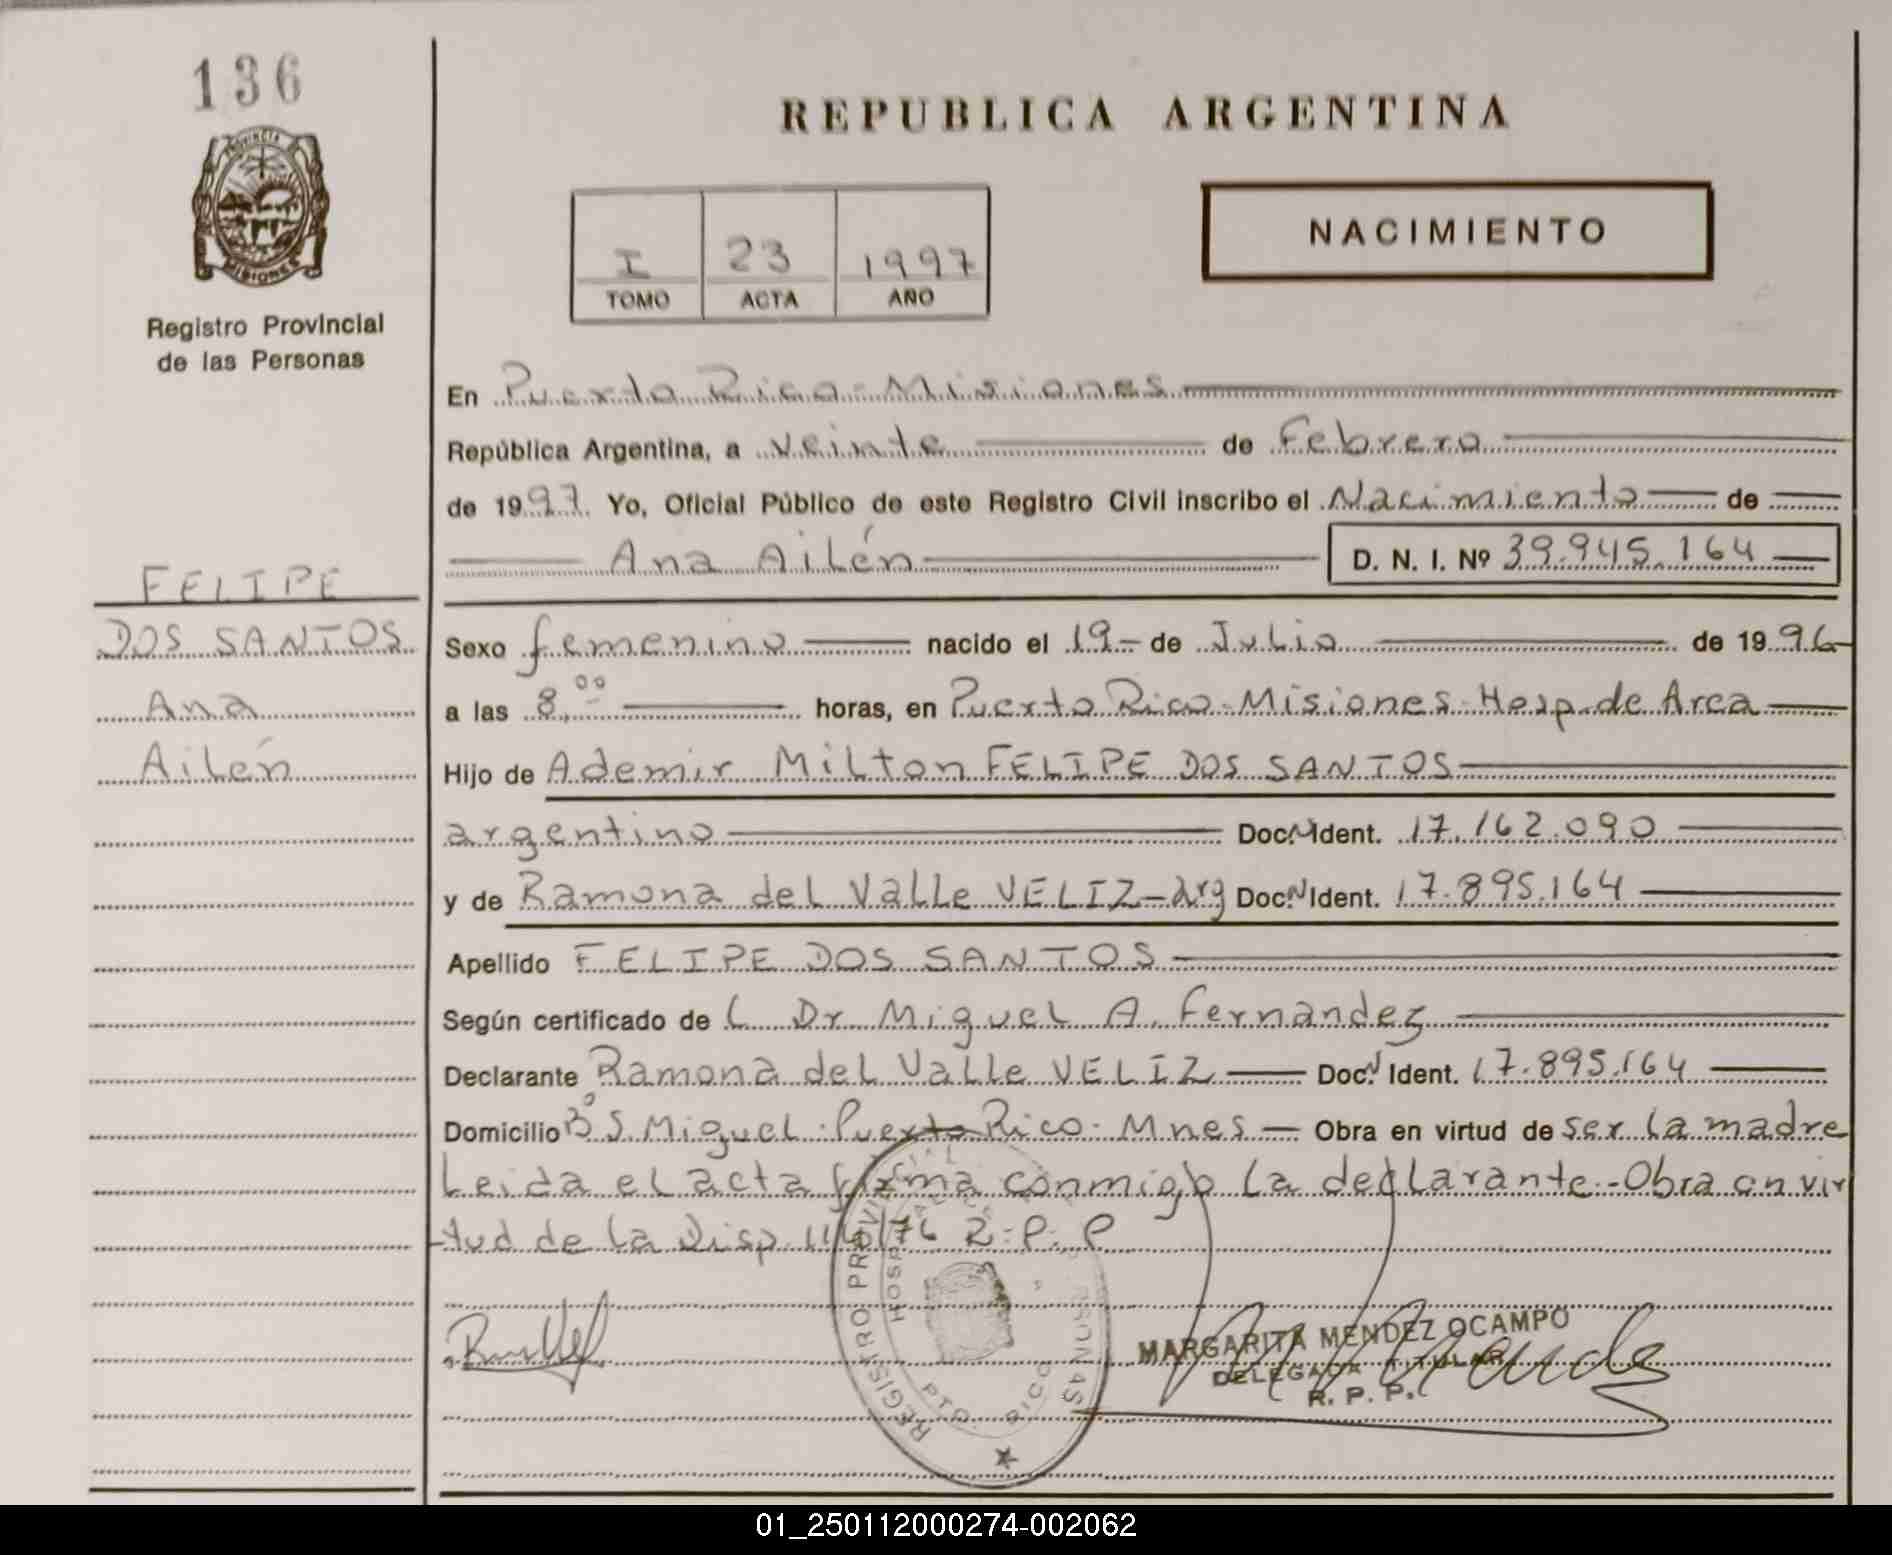 136
PROVINCIA
MISIONES
Registro Provincial
de las Personas
REPUBLICA ARGENTINA
I 23 1997
TOMO ACTA AÑO
NACIMIENTO
En Puerto Rico - Misiones
República Argentina, a veinte de Febrero
de 1997. Yo, Oficial Público de este Registro Civil inscribo el Nacimiento de
Ana Ailén D. N. I. Nº 39.945.164
FELIPE
DOS SANTOS
Ana
Ailén
Sexo femenino nacido el 19 - de Julio de 1996
a las 8,00 horas, en Puerto Rico - Misiones - Hosp. de Area
Hijo de Ademir Milton FELIPE DOS SANTOS
argentino Doc. N Ident. 17.162.090
y de Ramona del Valle VELIZ - arg Doc. N Ident. 17.895.164
Apellido FELIPE DOS SANTOS
Según certificado de L Dr Miguel A. Fernandez
Declarante Ramona del Valle VELIZ Doc. N Ident. 17.895.164
Domicilio Bº S. Miguel - Puerto Rico - Mnes - Obra en virtud de ser la madre
Leida el acta firma conmigo la declarante - Obra en vir
tud de la Disp. R. P. P
REGISTRO PROVINCIAL PERSONAS
HOSP
PTO. RICO
MARGARITA MENDEZ OCAMPO
DELEGADA TITULAR
R. P. P.
01_250112000274-002062